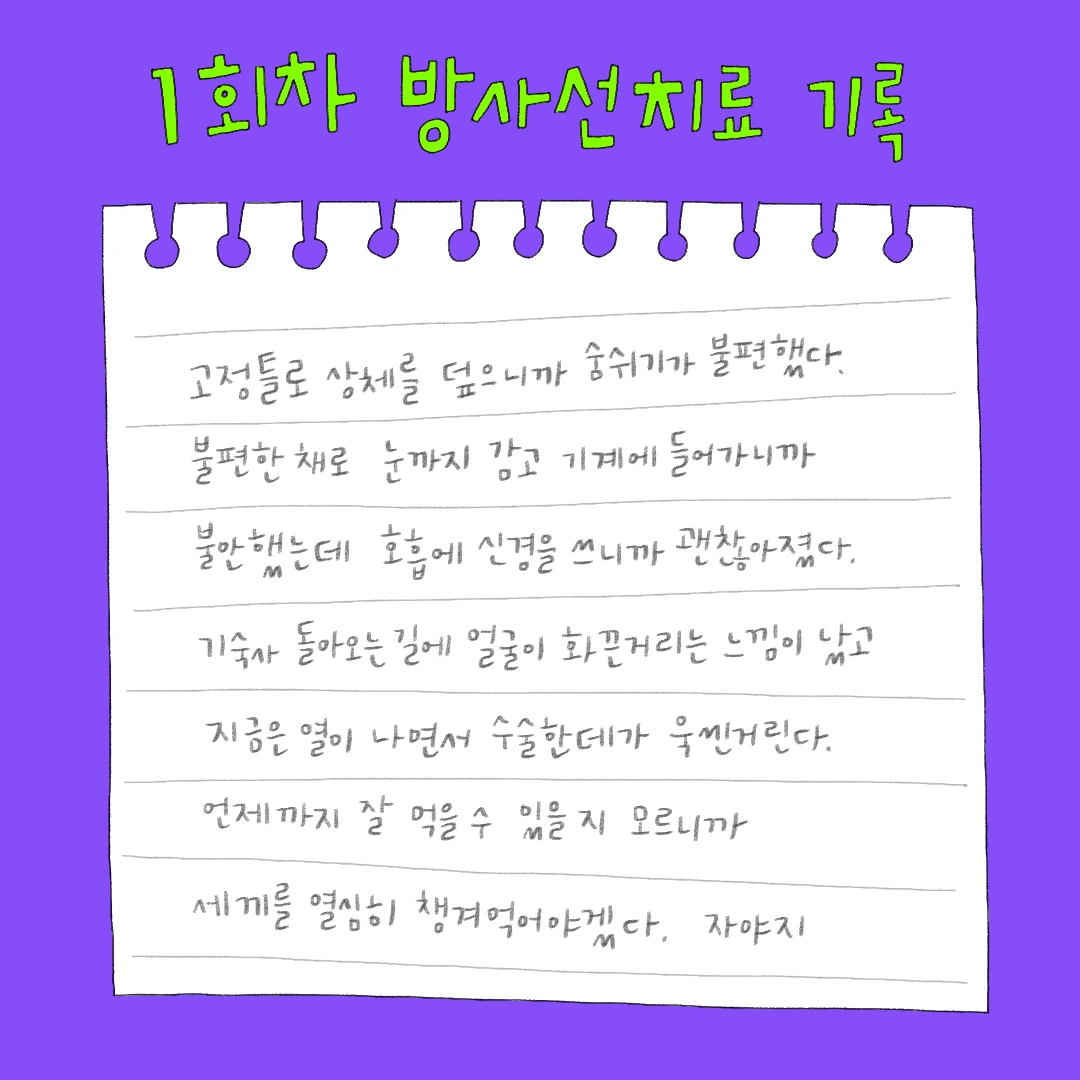 1회차 방사선치료 기록
고정틀로 상체를 덮으니까 숨쉬기가 불편했다.
불편한 채로 눈까지 감고 기계에 들어가니까
불안했는데 호흡에 신경을 쓰니까 괜찮아졌다.
기숙사 돌아오는길에 얼굴이 화끈거리는 느낌이 났고
지금은 열이 나면서 수술한데가 욱씬거린다.
언제까지 잘 먹을 수 있을 지 모르니까
세끼를 열심히 챙겨먹어야겠다. 자야지